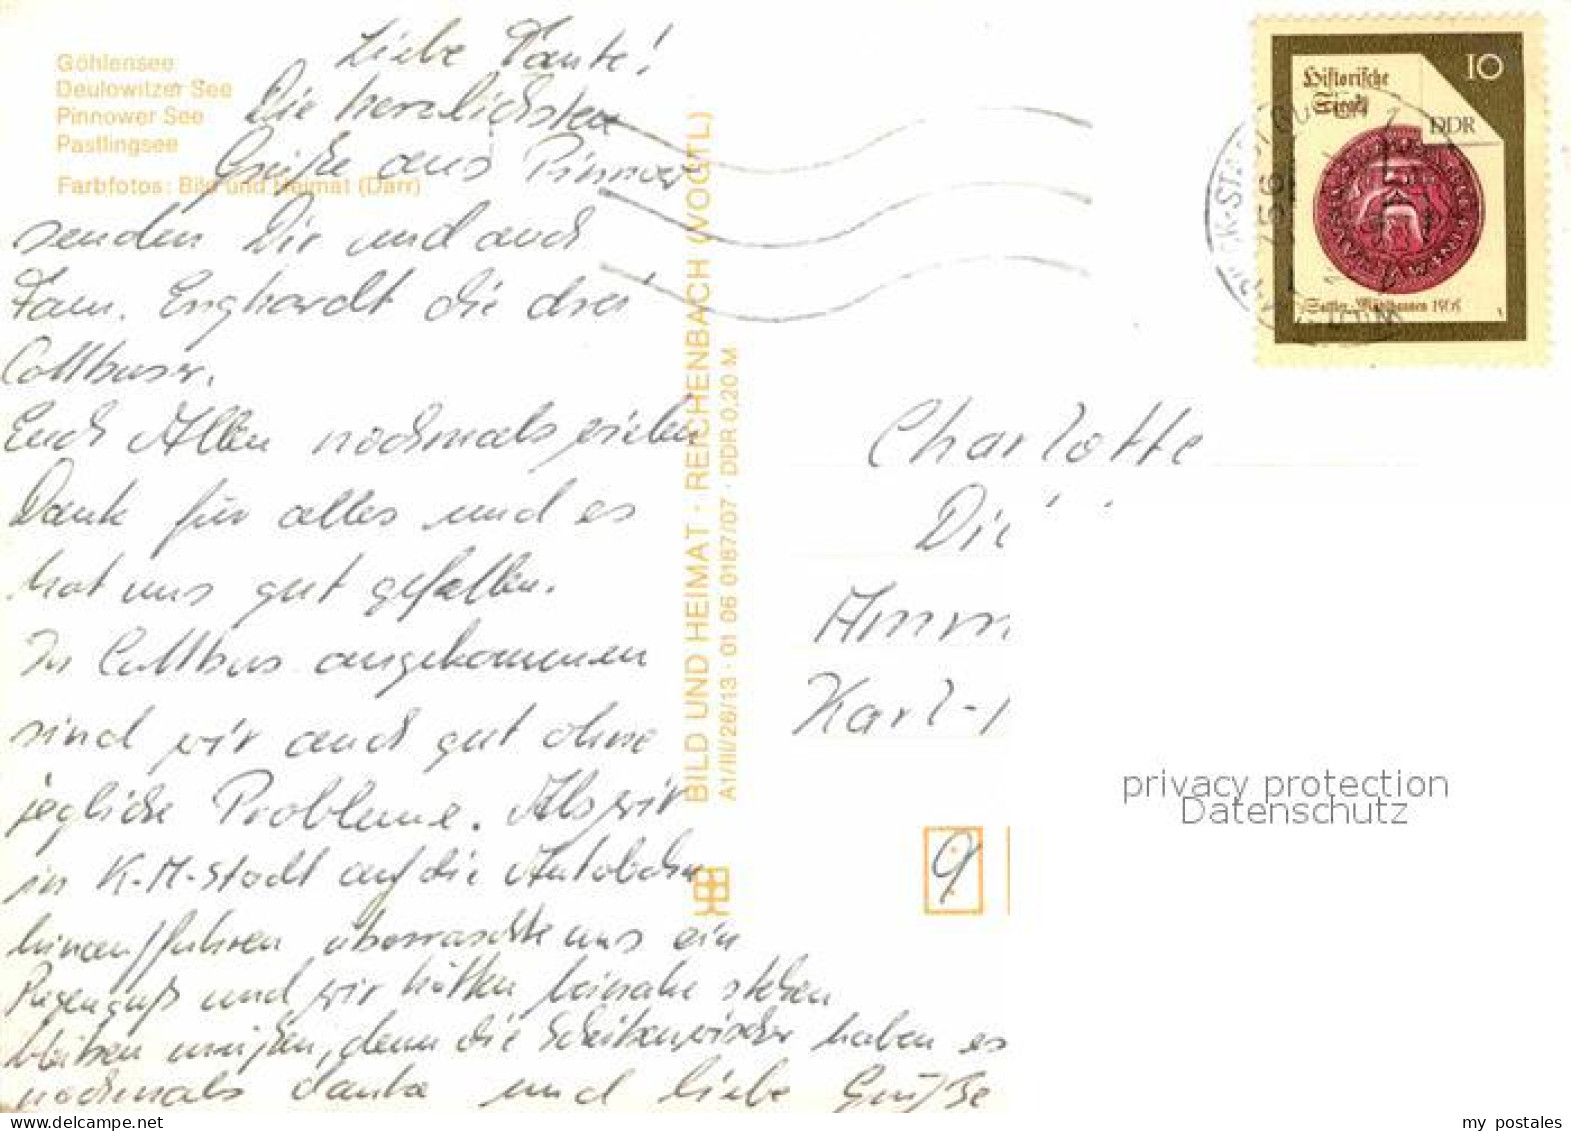 Göhlensee
Deulowitzer See
Pinnower See
Pastlingsee
Farbfotos: Bild und Heimat (Darr)
Liebe Tante!
Die herzlichsten
Grüße aus Pinnow
senden Dir und auch
Fam. Enghardt die drei
Cottbuser.
Euch Allen nochmals vielen
Dank für alles und es
hat uns gut gefallen.
In Cottbus angekommen
sind wir auch gut ohne
jegliche Probleme. Als wir
in K-M-Stadt auf die Autobahn
hinauffuhren überraschte uns ein
Regenguß und wir hätten beinahe stehen
bleiben müßen, denn die Scheibenwischer haben es
nochmals danke und liebe Grüße
BILD UND HEIMAT · REICHENBACH (VOGTL)
A1/III/26/13 · 01 06 0187/07 · DDR 0,20 M
Historische
Siegel
10
DDR
Sattler, Mühlhausen 1565
Charlotte
Karl-
9
privacy protection
Datenschutz
www.delcampe.net
my_postales